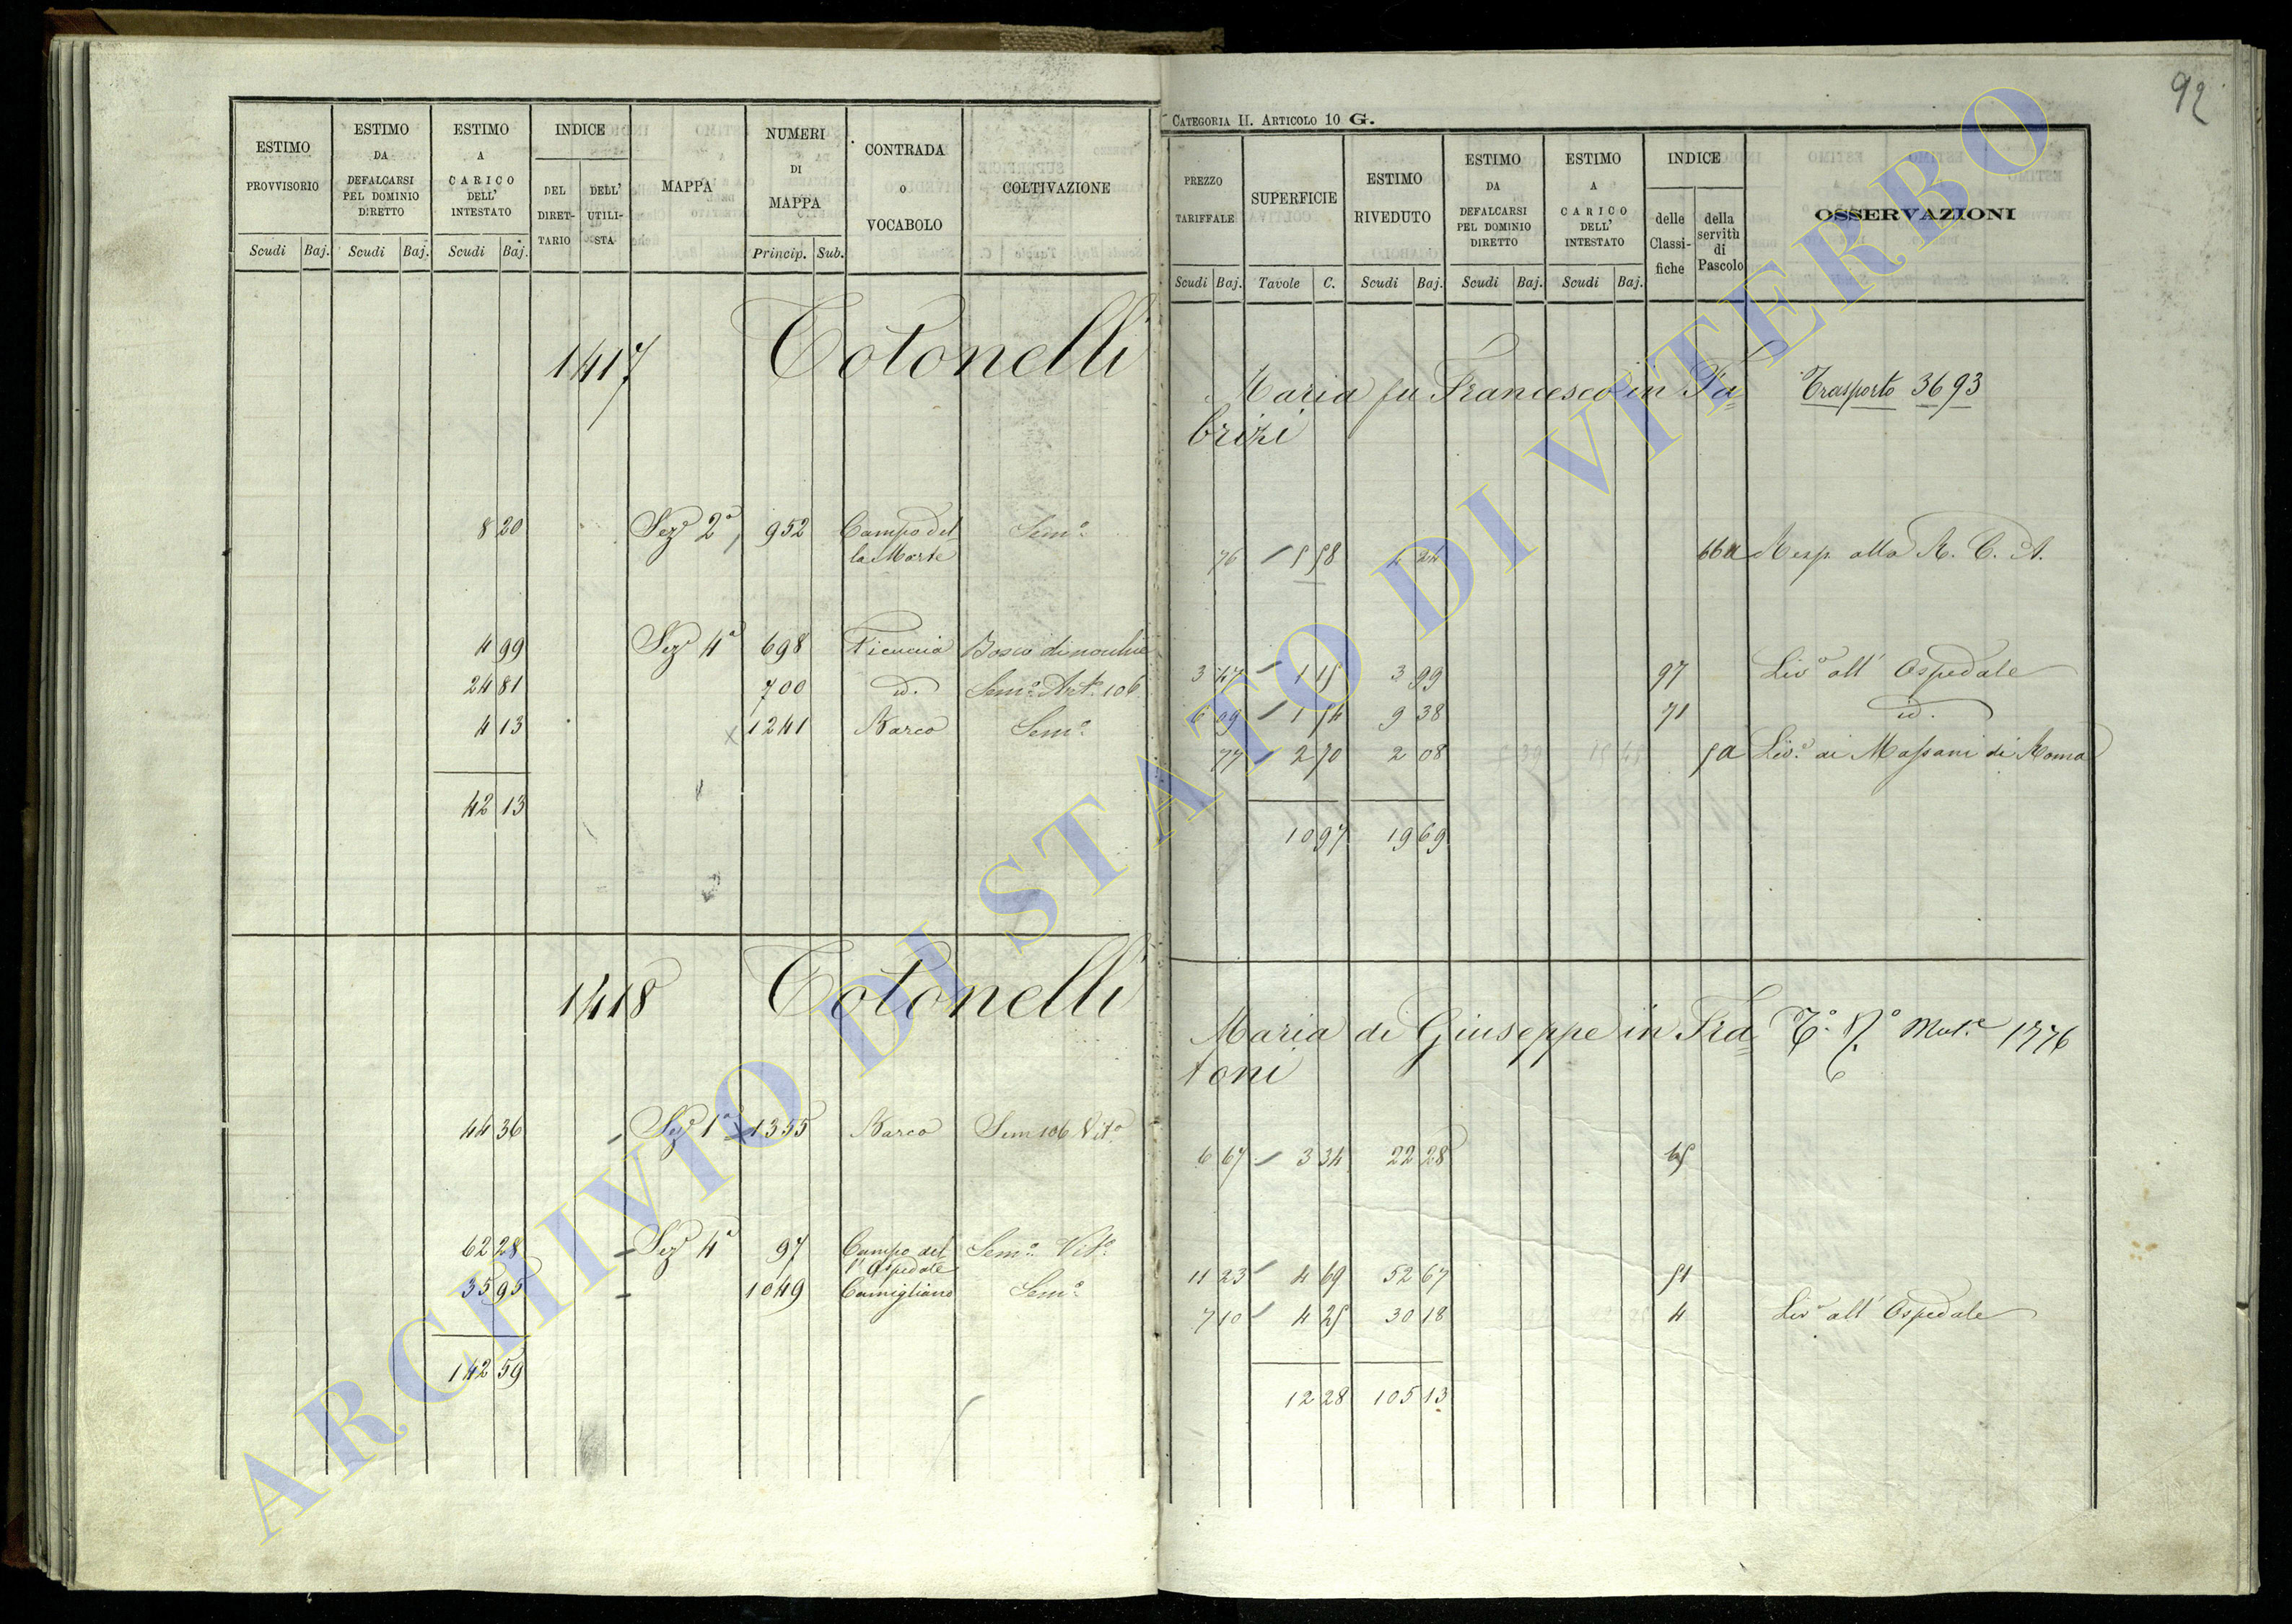 92
CATEGORIA II. ARTICOLO 10 G.
ESTIMO PROVVISORIO
ESTIMO DA DEFALCARSI PEL DOMINIO DIRETTO
ESTIMO A CARICO DELL' INTESTATO
INDICE
DEL DIRET-TARIO
DELL' UTILI-STA
MAPPA
NUMERI DI MAPPA
CONTRADA O VOCABOLO
COLTIVAZIONE
Scudi Baj. Scudi Baj. Scudi Baj. Princip. Sub.
PREZZO TARIFFALE
SUPERFICIE
ESTIMO RIVEDUTO
ESTIMO DA DEFALCARSI PEL DOMINIO DIRETTO
ESTIMO A CARICO DELL' INTESTATO
INDICE
delle Classi-fiche
della servitù di Pascolo
OSSERVAZIONI
Scudi Baj. Tavole C. Scudi Baj. Scudi Baj. Scudi Baj.
1417 Totonelli
Maria fu Francesco in Fa= Trasporto 3693
brizi
8 20 Sez.e 2a 952 Campo del Sem.o
la Morte
76 5 58 4 24 66a Resp. alla R. C. A.
4 99 Sez.e 4a 698 Ficuccia Bosco di nocchie
3 47 1 15 3 99 97 Liv.o all' Ospedale
24 81 700 id. Sem.o Art. 106
6 09 1 54 9 38 71 id.
4 13 1241 Barco Sem.o
77 2 70 2 08 5a Liv.o ai Massani di Roma
42 13
10 97 19 69
1418 Totonelli
Maria di Giuseppe in Fra= T.o N.o Mut.e 1776
toni
44 36 Sez.e 1a 1355 Barco Sem 106 Vit.o
6 67 3 34 22 28 65
62 28 Sez.e 4a 97 Campo del Sem.o Vit.o
l'Ospedale
11 23 4 69 52 67 51
35 95 1049 Camigliano Sem.o
7 10 4 25 30 18 4 Liv.o all' Ospedale
142 59
12 28 105 13
ARCHIVIO DI STATO DI VITERBO